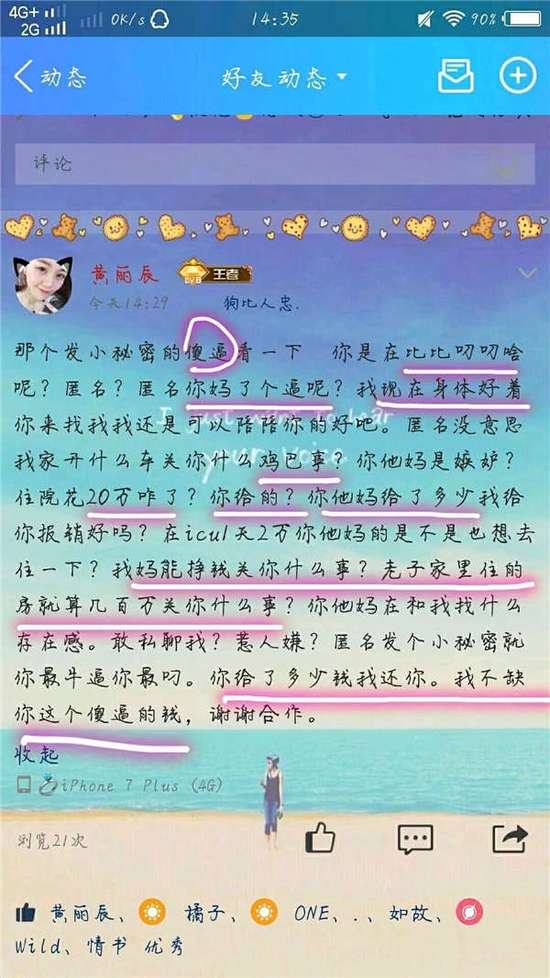 4G+ 2G 0K/s 14:35 90%
动态 好友动态
评论
黄丽辰 王者
今天14:29 狗比人忠.
那个发小秘密的傻逼看一下 你是在比比叨叨啥
呢？匿名？匿名你妈了个逼呢？我现在身体好着
你来找我我还是可以陪陪你的好吧。匿名没意思
我家开什么车关你什么鸡巴事？你他妈是嫉妒？
住院花20万咋了？你给的？你他妈给了多少我给
你报销好吗？在icu1天2万你他妈的是不是也想去
住一下？我妈能挣钱关你什么事？老子家里住的
房就算几百万关你什么事？你他妈在和我找什么
存在感。敢私聊我？惹人嫌？匿名发个小秘密就
你最牛逼你最叼。你给了多少钱我还你。我不缺
你这个傻逼的钱，谢谢合作。
I just want to hear
your voice
收起
iPhone 7 Plus (4G)
浏览21次
黄丽辰、 橘子、 ONE、.、如故、
Wild、情书 优秀